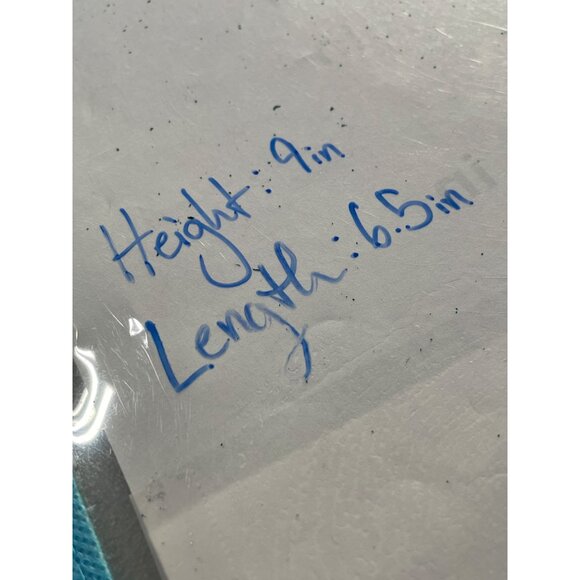 Height: 9in
Length: 6.5in